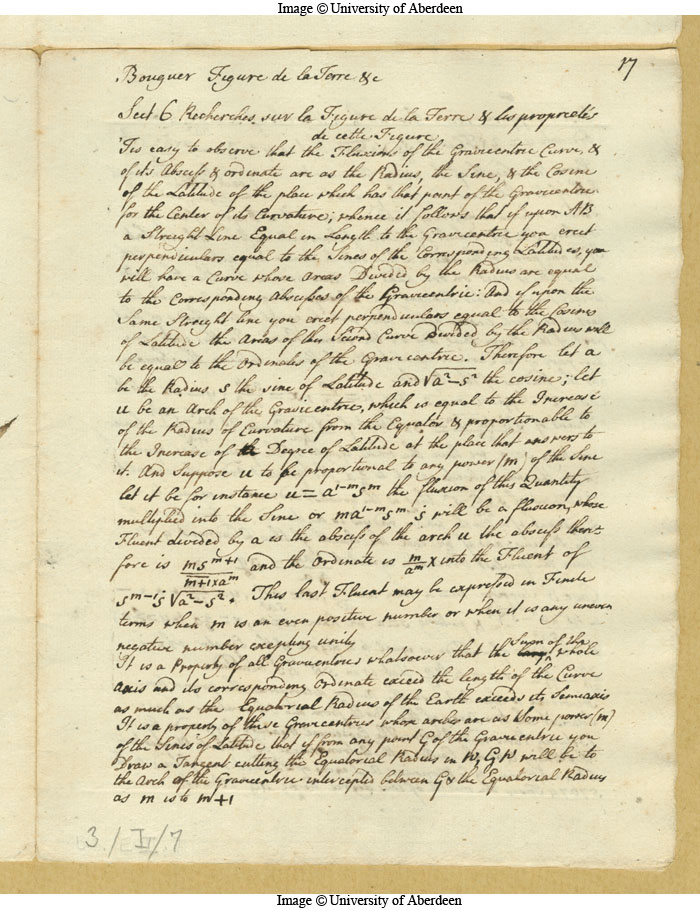 Image © University of Aberdeen
17
Bouguer Figure de la Terre &c
Sect 6 Recherches sur la Figure de la Terre & les proprietés
de cette Figure
'Tis easy to observe that the Fluxions of the Gravicentric Curve, &
of its Absciss & ordinate are as the Radius, the Sine, & the Cosine
of the Latitude of the place which has that point of the Gravicentric
for the Center of its Curvature; whence it follows that if upon AB
a Streight Line Equal in Length to the Gravicentric you erect
perpendiculars equal to the Sines of the Corresponding Latitudes, you
will have a Curve whose Areas Divided by the Radius are equal
to the Corresponding Abscisses of the Gravicentric: And if upon the
Same Streight line you erect perpendiculars equal to the Cosines
of Latitude the Areas of this Second Curve Divided by the Radius will
be equal to the Ordinates of the Gravicentric. Therefore let a
be the Radius s the sine of Latitude and √a²–s² the cosine; let
u be an Arch of the Gravicentric, which is equal to the Increase
of the Radius of Curvature from the Equator & proportionable to
the Increase of the Degree of Latitude at the place that answers to
it. And Suppose u to be proportional to any power (m) of the Sine
let it be for instance u = a^1-m s^m the fluxion of this Quantity
multiplied into the Sine or ma^1-m s^m ṡ will be a fluxion, whose
Fluent divided by a is the absciss of the arch u the absciss there=
fore is m s^m+1 / m+1 x a^m and the Ordinate is m/a^m x into the Fluent of
s^m-1 ṡ √a²–s². This last Fluent may be expressed in Finite
terms when m is an even positive number or when it is any uneven
negative number excepting unity
It is a Property of all Gravicentrics whatsoever that the Sum of the whole
axis and its corresponding Ordinate exceed the length of the Curve
as much as the Equatorial Radius of the Earth exceeds its Semiaxis
It is a property of these Gravicentrics whose arches are as Some power (m)
of the Sines of Latitude that if from any point G of the Gravicentric you
Draw a Tangent cutting the Equatorial Radius in W, GW will be to
the Arch of the Gravicentric intercepted between G & the Equatorial Radius
as m is to m+1
3/I/7
Image © University of Aberdeen